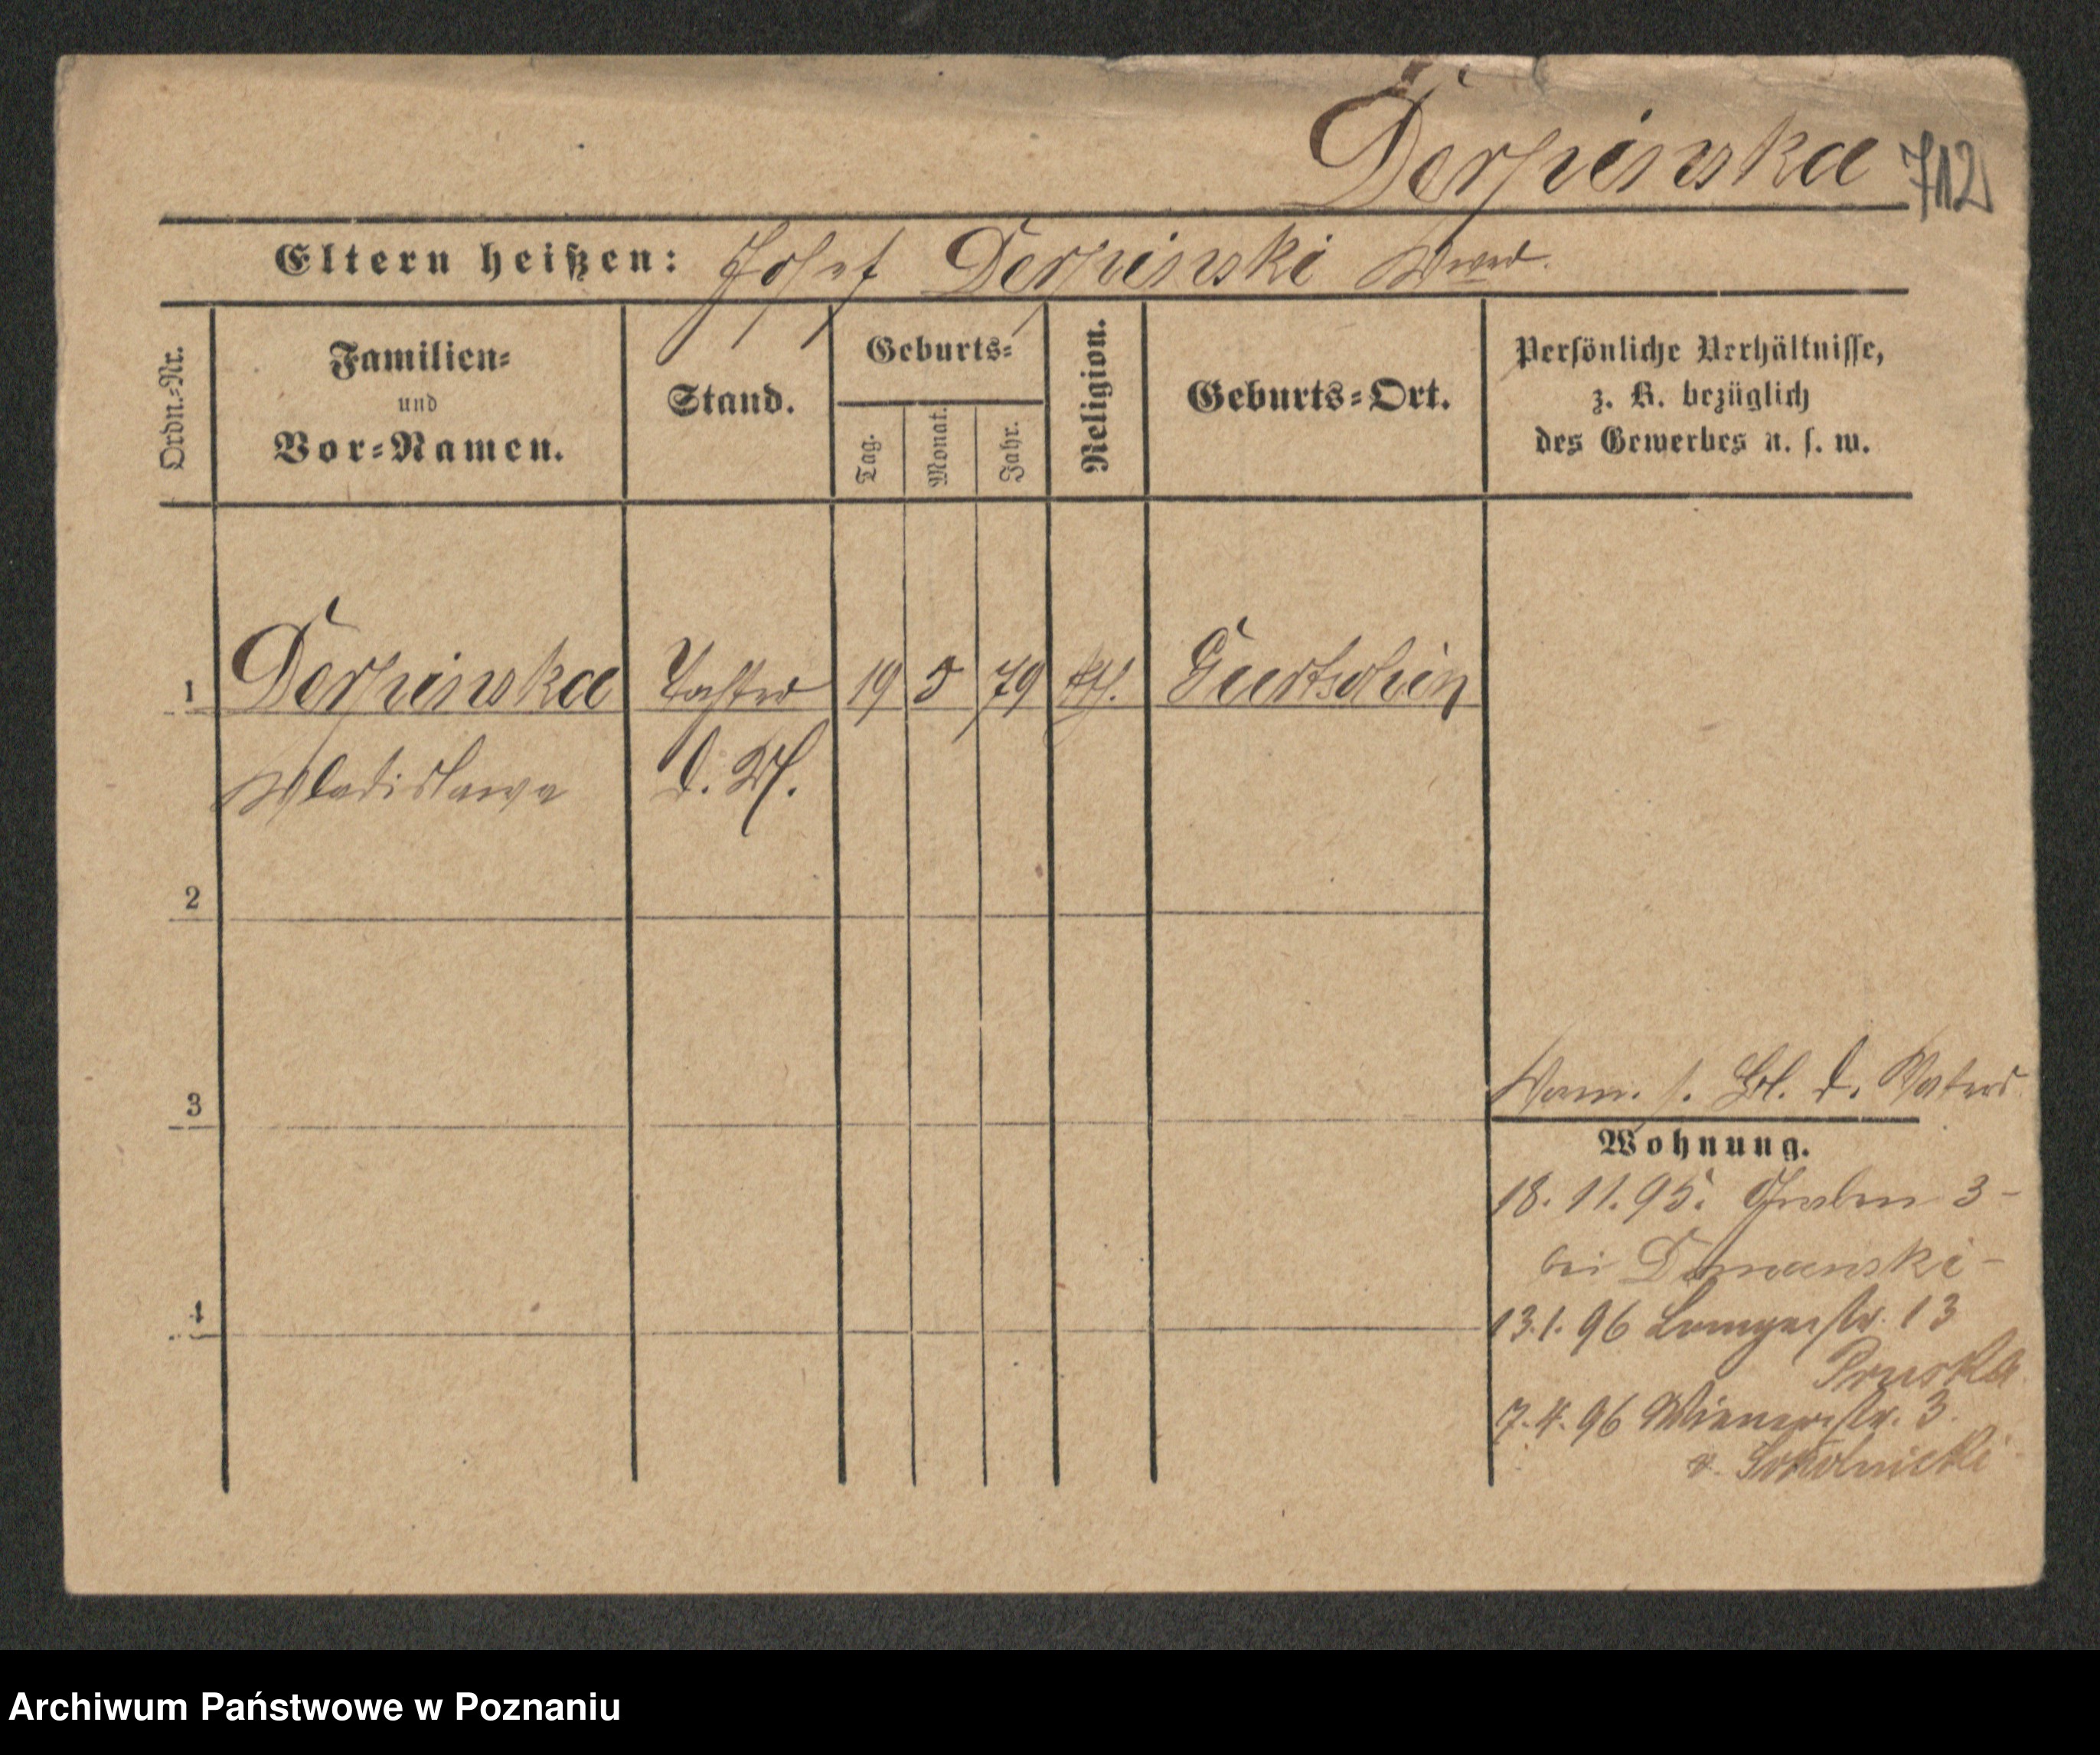 Derpinska 712
Eltern heißen: Josef Derpinski
Ordn.-Nr.
Familien-
und
Vor-Namen.
Stand.
Geburts-
Tag.
Monat.
Jahr.
Religion.
Geburts-Ort.
Persönliche Verhältnisse,
z. B. bezüglich
des Gewerbes u. s. w.
1 Derpinska Tochter 19 5 79 kth.
Wladislawa d. W.
2
3
s. Bl. d. Vaters
Wohnung.
18.11.95. Graben 3-
bei Domanski-
4
13.1.96 Langestr. 13
Pruska
7.4.96 Wienerstr. 3.
v. Sokolnicki
Archiwum Państwowe w Poznaniu